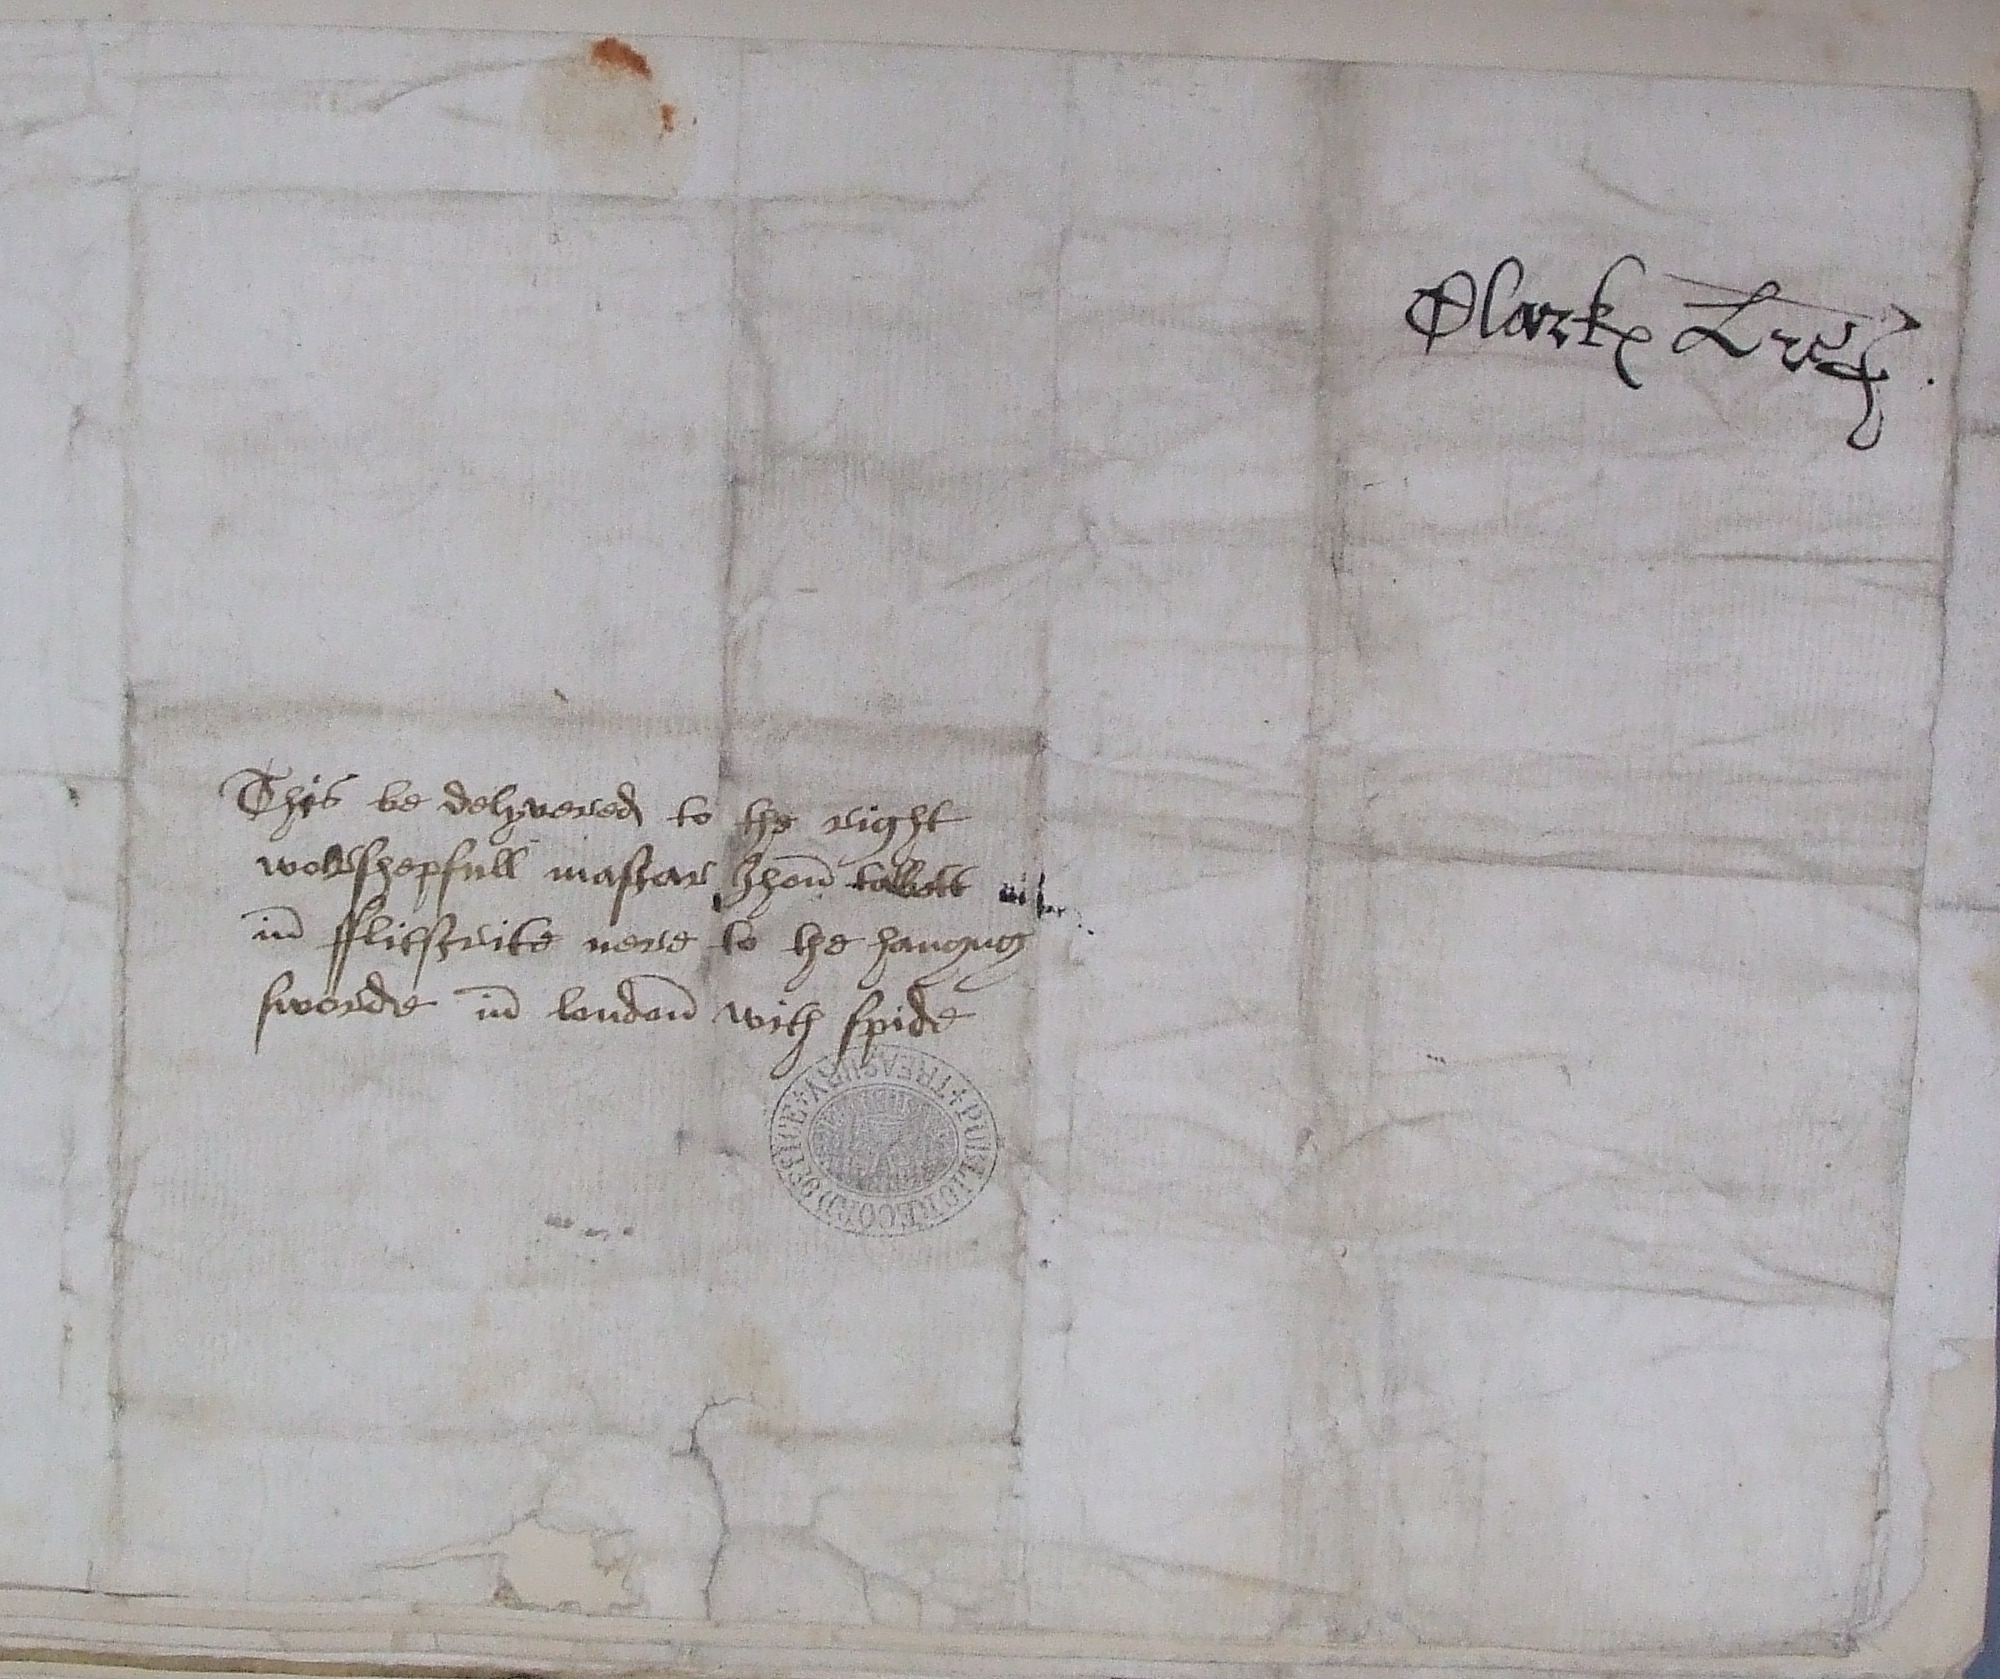 Clark Lres
This be delyvered to the right
worshepfull mastar Jhon talbott
in fflitstrite nere to the hangyng
sworde in london with spide
PUBLIC RECORD OFFICE + TREASURY +